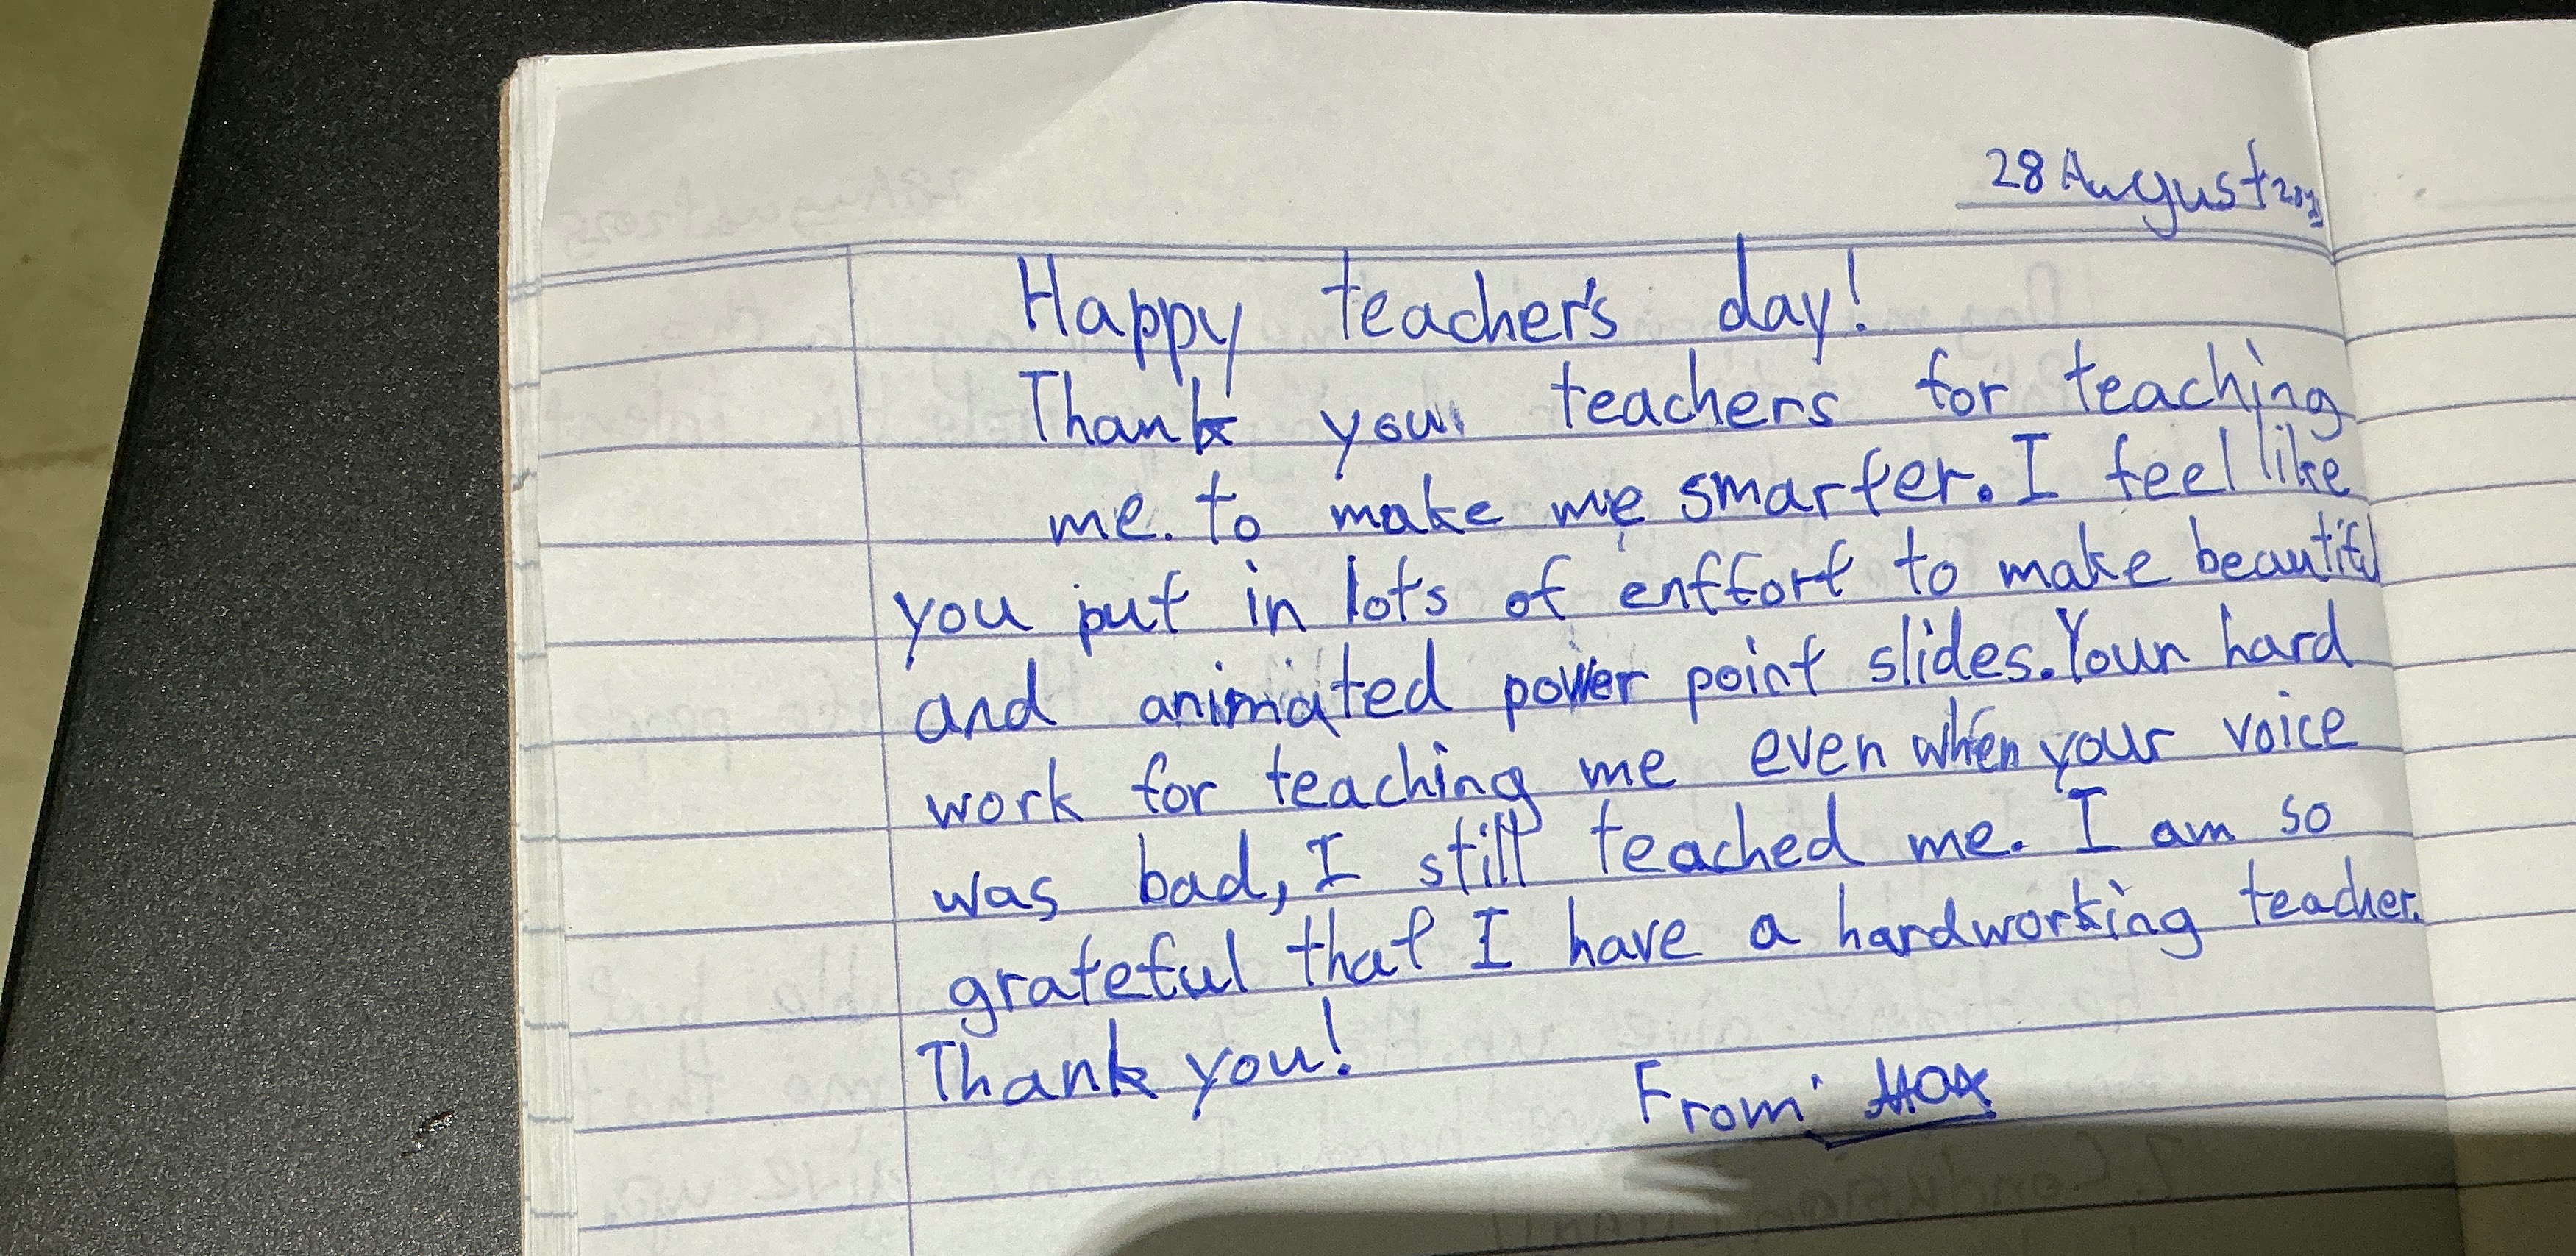 28 August
Happy teacher's day!
Thank you teachers for teaching
me. to make me smarter. I feel like
you put in lots of enffort to make beautiful
and animated power point slides. Your hard
work for teaching me even when your voice
was bad, I still teached me. I am so
grateful that I have a hardworking teacher.
Thank you!
From: